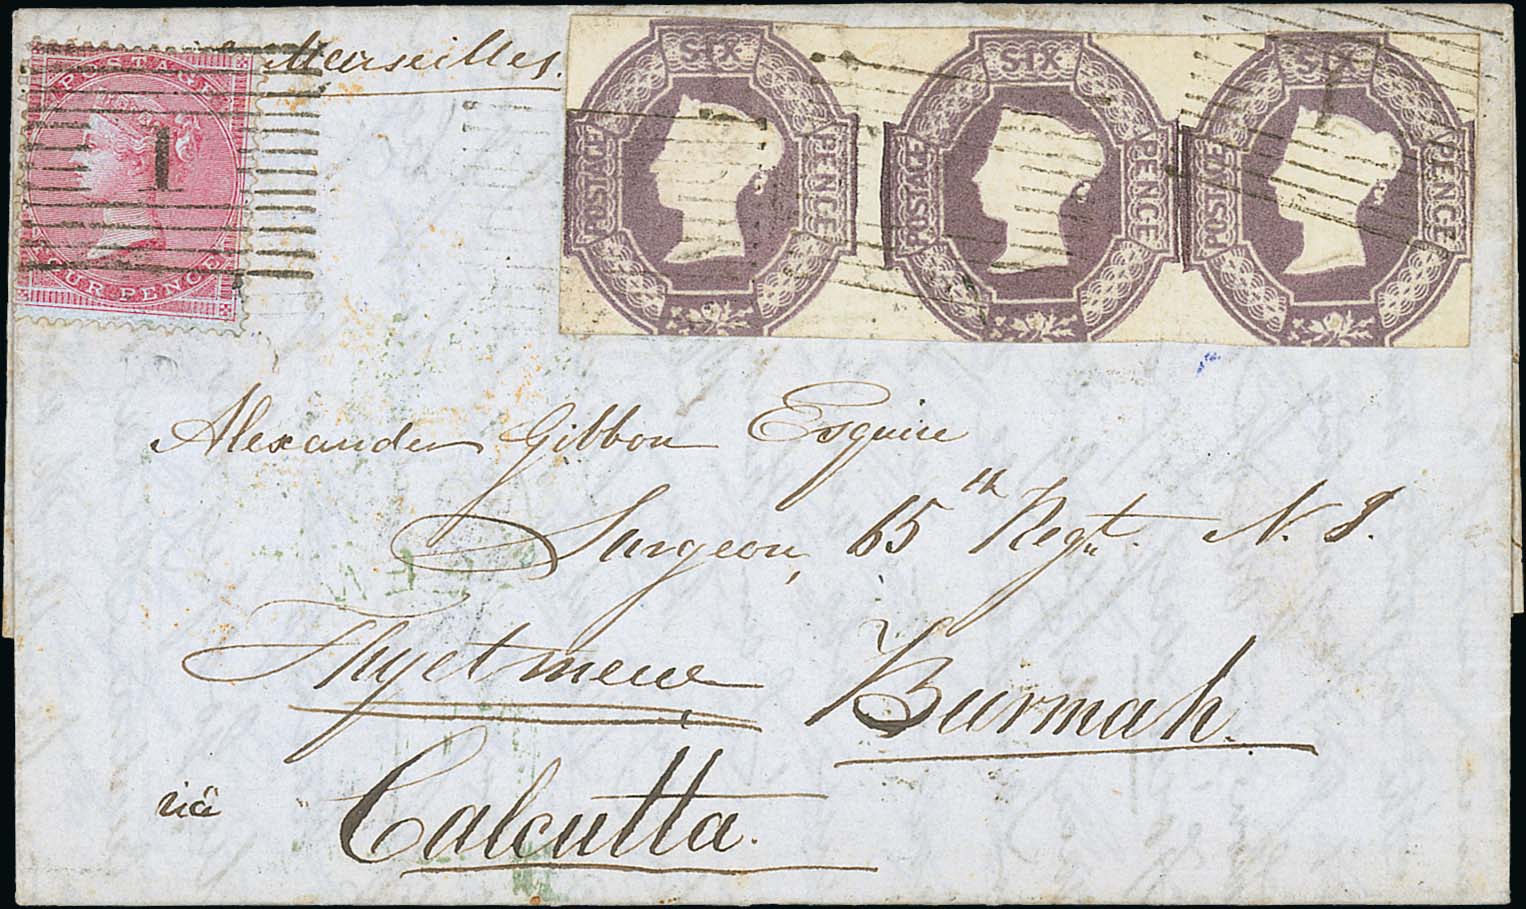 Marseilles.
POSTAGE
FOUR PENCE
1
SIX
POSTAGE
PENCE
SIX
POSTAGE
PENCE
SIX
POSTAGE
PENCE
Alexander Gibbon Esquire
Surgeon, 65th Regt. N. I.
Thyetmeue Burmah.
via Calcutta.